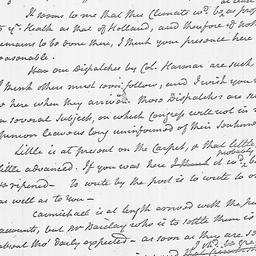 It seems to me that this Climate wd. be as prop
to yr. Health as that of Holland, and therefore if not
remains to be done there, I think your presence here
reasonable.
How our Dispatches by Col. Harmar are such
I think others must soon follow, and I wish you
be here when they arrive. Those Dispatches are s
on several Subjects, on which Congress will not in
opinion leave us long uninformed of their Sentim
Little is at present on the Carpet, & that little
little advanced. If you was here I think it wd. be
ripened— To write by the post is to write to o
as well as to you—
Carmichael is at length arrived with the pu
accounts, but Mr Barclay who is to settle them is
about tho' Daily expected— as soon as they are se